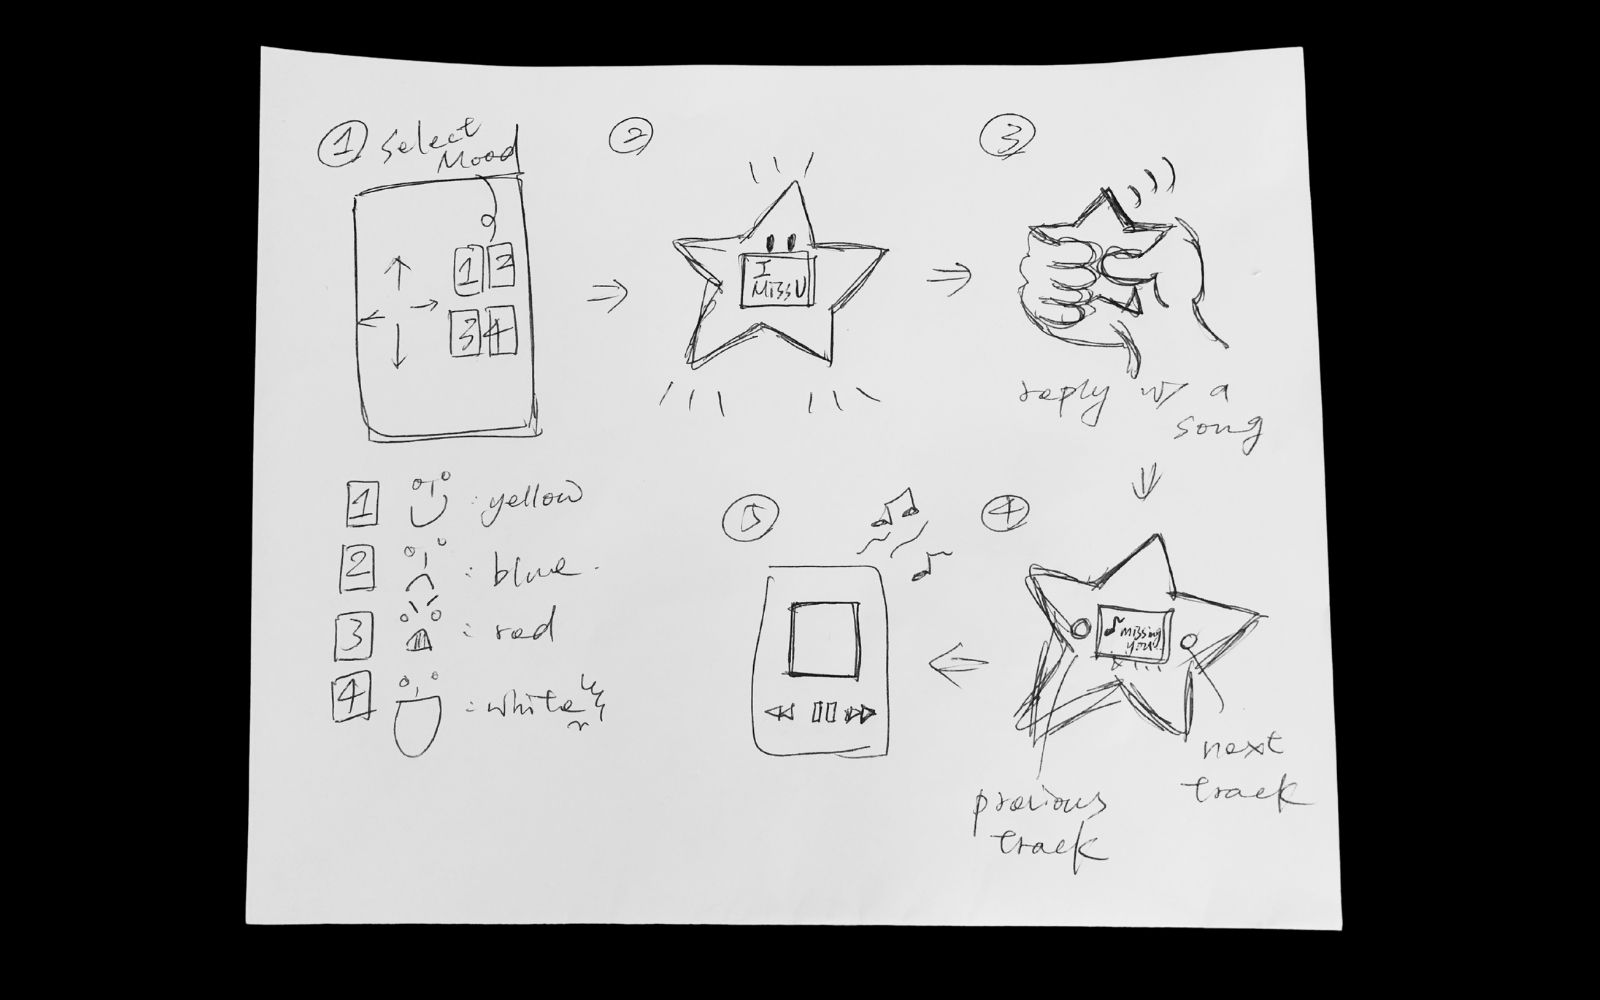 1 select
Mood
1 2
3 4
1 : yellow
2 : blue.
3 : red
4 : white
2
I
MISS U
3
reply w/ a
song
4
missing
you
previous
track
next
track
5